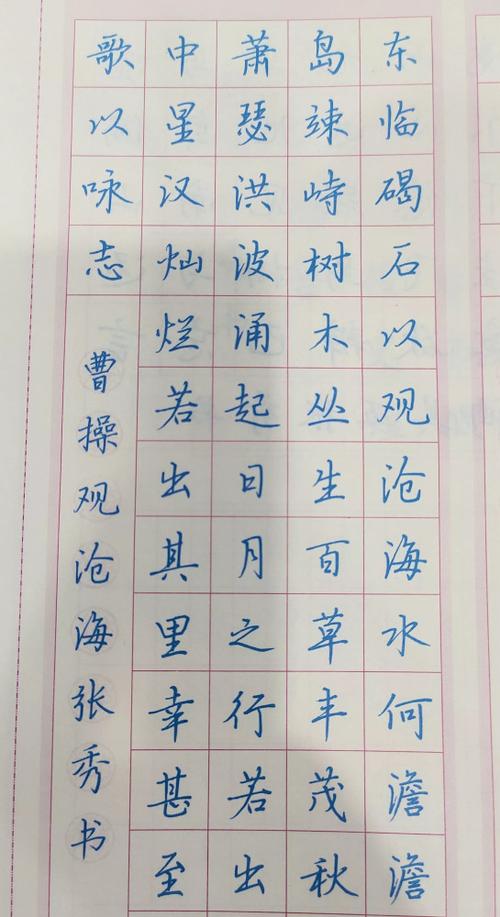 东临碣石以观沧海水何澹澹
岛竦峙树木丛生百草丰茂秋
萧瑟洪波涌起日月之行若出
中星汉灿烂若出其里幸甚至
歌以咏志
曹操观沧海张秀书